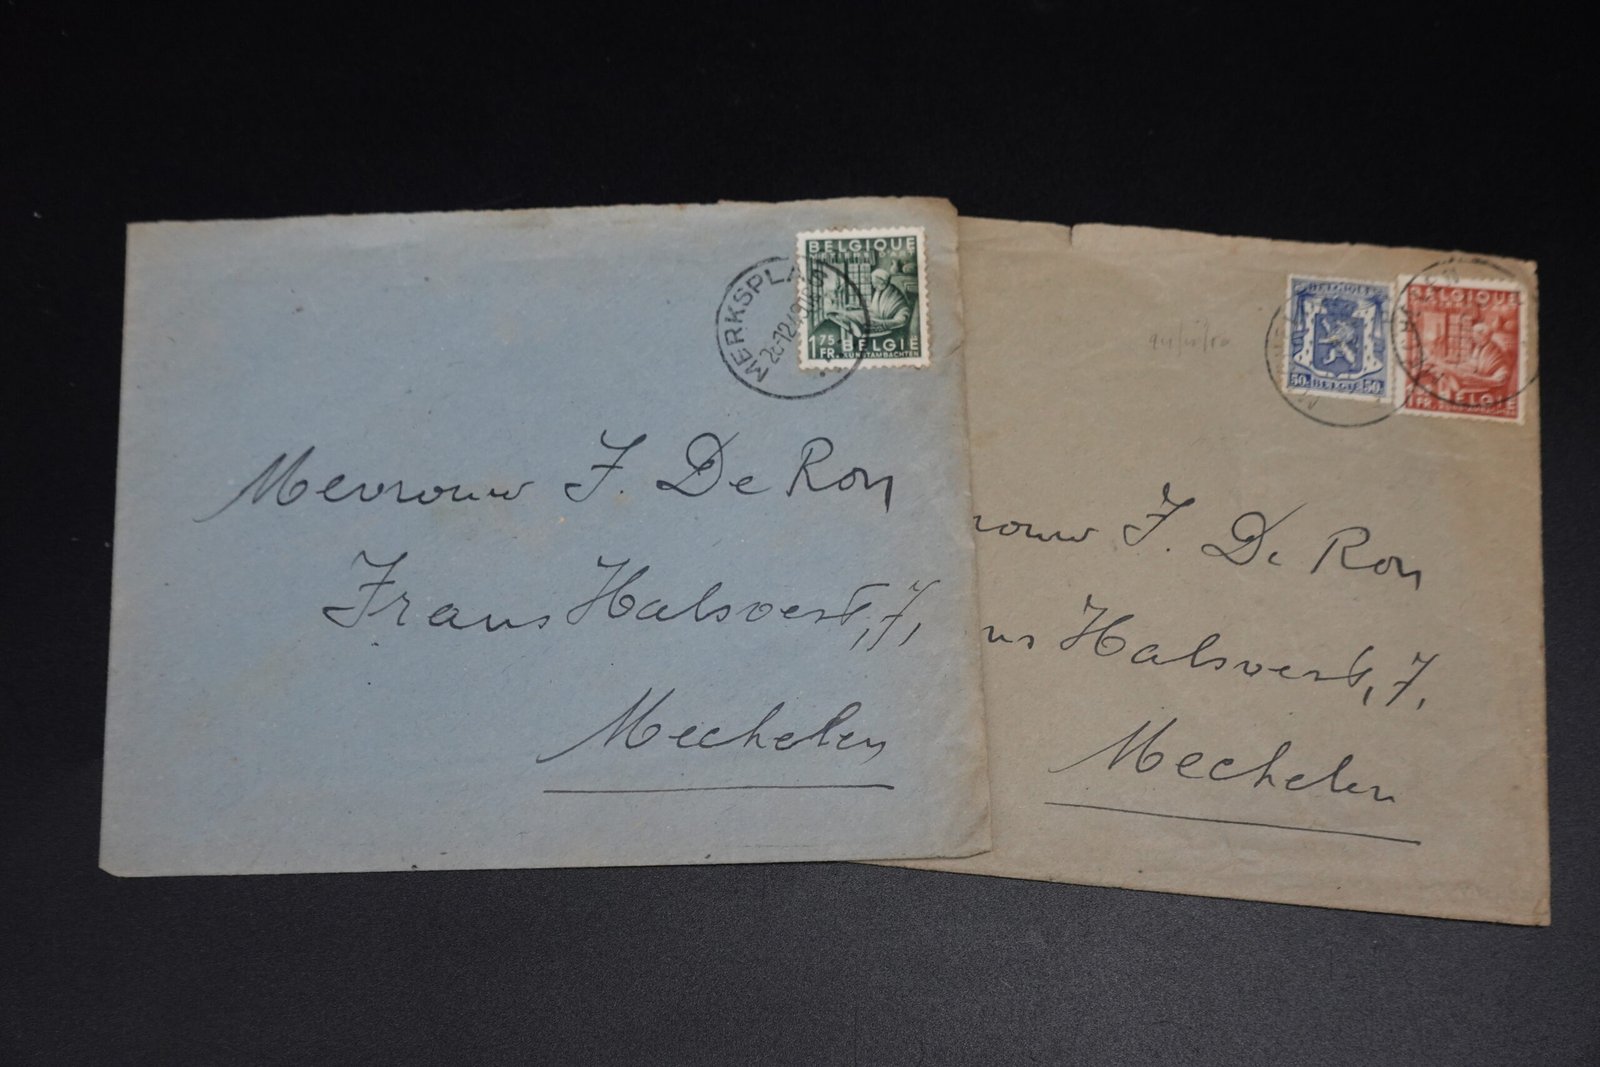 BELGIQUE
1 75 FR. BELGIE
KUNSTAMBACHTEN
MERKSPLAS
Mevrouw J. De Ron
Frans Halsvest, 7,
Mechelen
BELGIQUE
50c BELGIE 50c
BELGIQUE
1 FR. BELGIE
rouw J. De Ron
ns Halsvest, 7.
Mechelen